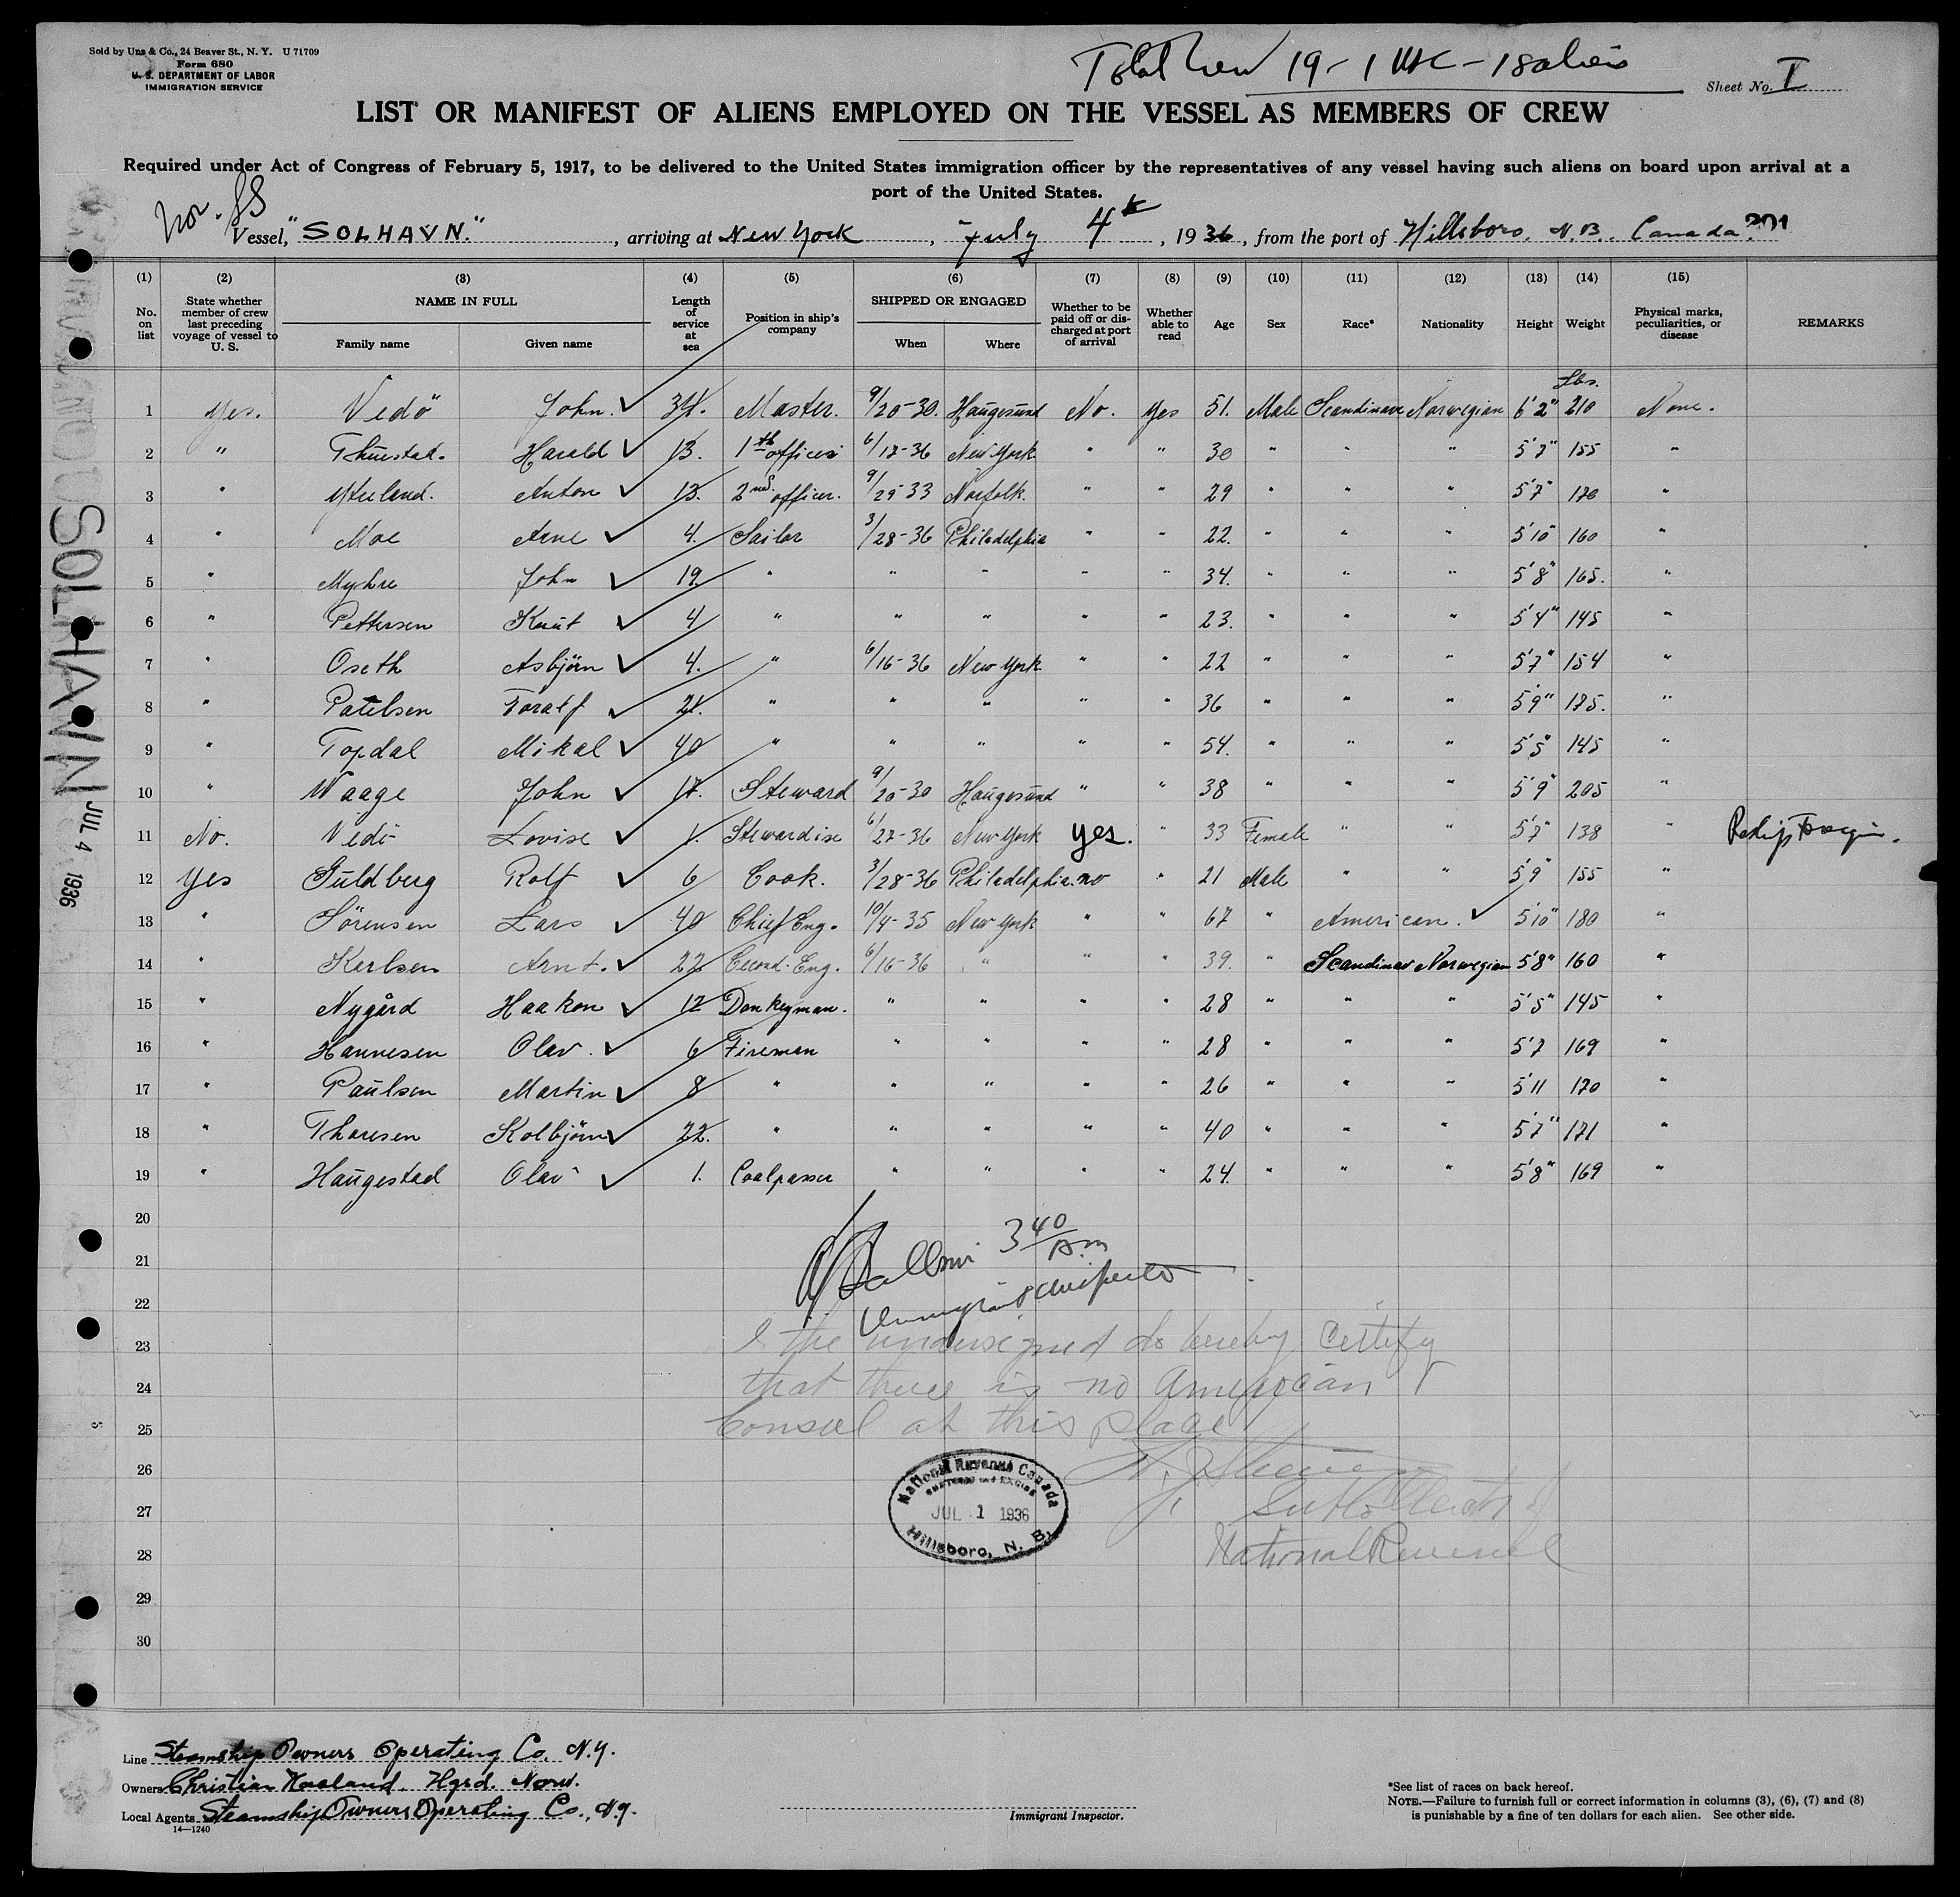 Sold by Uns & Co., 24 Beaver St., N. Y. U 71709
Form 680
U. S. DEPARTMENT OF LABOR
IMMIGRATION SERVICE
Total Crew 19 - 1 USC - 18 aliens
Sheet No. I
LIST OR MANIFEST OF ALIENS EMPLOYED ON THE VESSEL AS MEMBERS OF CREW
Required under Act of Congress of February 5, 1917, to be delivered to the United States immigration officer by the representatives of any vessel having such aliens on board upon arrival at a
port of the United States.
Nor. SS
Vessel, "SOLHAVN.", arriving at New York, July 4th, 1936, from the port of Hillsboro, N.B., Canada. 201
(1) (2) (3) (4) (5) (6) (7) (8) (9) (10) (11) (12) (13) (14) (15)
No. on list
State whether member of crew last preceding voyage of vessel to U. S.
NAME IN FULL
Family name
Given name
Length of service at sea
Position in ship's company
SHIPPED OR ENGAGED
When
Where
Whether to be paid off or discharged at port of arrival
Whether able to read
Age
Sex
Race*
Nationality
Height
Weight
Physical marks, peculiarities, or disease
REMARKS
Lbs.
1 Yes. Vedö John. ✓ 34. Master. 9/20-30. Haugesund No. Yes 51. Male Scandinave Norwegian 6'2" 210 None.
2 " Harald ✓ 13. 1th officer 6/17-36 New York " " 30 " " " 5'7" 155 "
3 " Anton ✓ 13. 2nd officer. 9/25-33 Norfolk. " " 29 " " " 5'7" 170 "
4 " Moe Arne ✓ 4. Sailor 3/28-36 Philadelphia " " 22. " " " 5'10" 160 "
5 " Myhre John ✓ 19. " " " " " 34. " " " 5'8" 165. "
6 " Pettersen Knut ✓ 4 " " " " " 23. " " " 5'4" 145 "
7 " Oseth Asbjörn ✓ 4. " 6/16-36 New York " " 22 " " " 5'7" 154 "
8 " Toralf ✓ 21. " " " " " 36 " " " 5'9" 175. "
9 " Topdal Mikal ✓ 40 " " " " " 54. " " " 5'5" 145 "
10 " Waage John ✓ 17. Steward 9/20-30 Haugesund " " 38 " " " 5'9" 205 "
11 No. Vedö Lovise ✓ 1. Stewardise 6/27-36 New York yes. " 33 Female " " 5'7" 138 "
12 Yes Guldberg Rolf ✓ 6 Cook. 3/28-36 Philadelphia. no " 21 Male " " 5'9" 155 "
13 " Sörensen Lars ✓ 40 Chief Eng. 10/4-35 New York " " 67 " American. ✓ 5'10" 180 "
14 " Karlsen Arnt. ✓ 22 Second. Eng. 6/16-36 " " " 39. " Scandinav Norwegian 5'8" 160 "
15 " Nygård Haakon ✓ 12 Donkeyman. " " " " 28 " " " 5'5" 145 "
16 " Hannesen Olav. ✓ 6 Fireman " " " " 28 " " " 5'7 169 "
17 " Paulsen Martin ✓ 8 " " " " " 26 " " " 5'11 170 "
18 " Thoresen Kolbjörn ✓ 22. " " " " " 40 " " " 5'7" 171 "
19 " Haugestad Olav ✓ 1. Coalpasser " " " " 24. " " " 5'8" 169 "
20
21
22
23
24
25
26
27
28
29
30
3 40/A.m
Immigrant Inspector
I the undersigned do hereby certify
that there is no American
Consul at this place
National Revenue
National Revenue Canada
CUSTOMS and EXCISE
JUL 1 1936
Hillsboro, N. B.
SOLHAVN JUL 4 1936
Line Steamship Owners Operating Co. N.Y.
Owners Christian Haaland. Hgsd. Norw.
Local Agents Steamship Owners Operating Co., N.Y.
14—1240
Immigrant Inspector.
*See list of races on back hereof.
NOTE.—Failure to furnish full or correct information in columns (3), (6), (7) and (8)
is punishable by a fine of ten dollars for each alien. See other side.